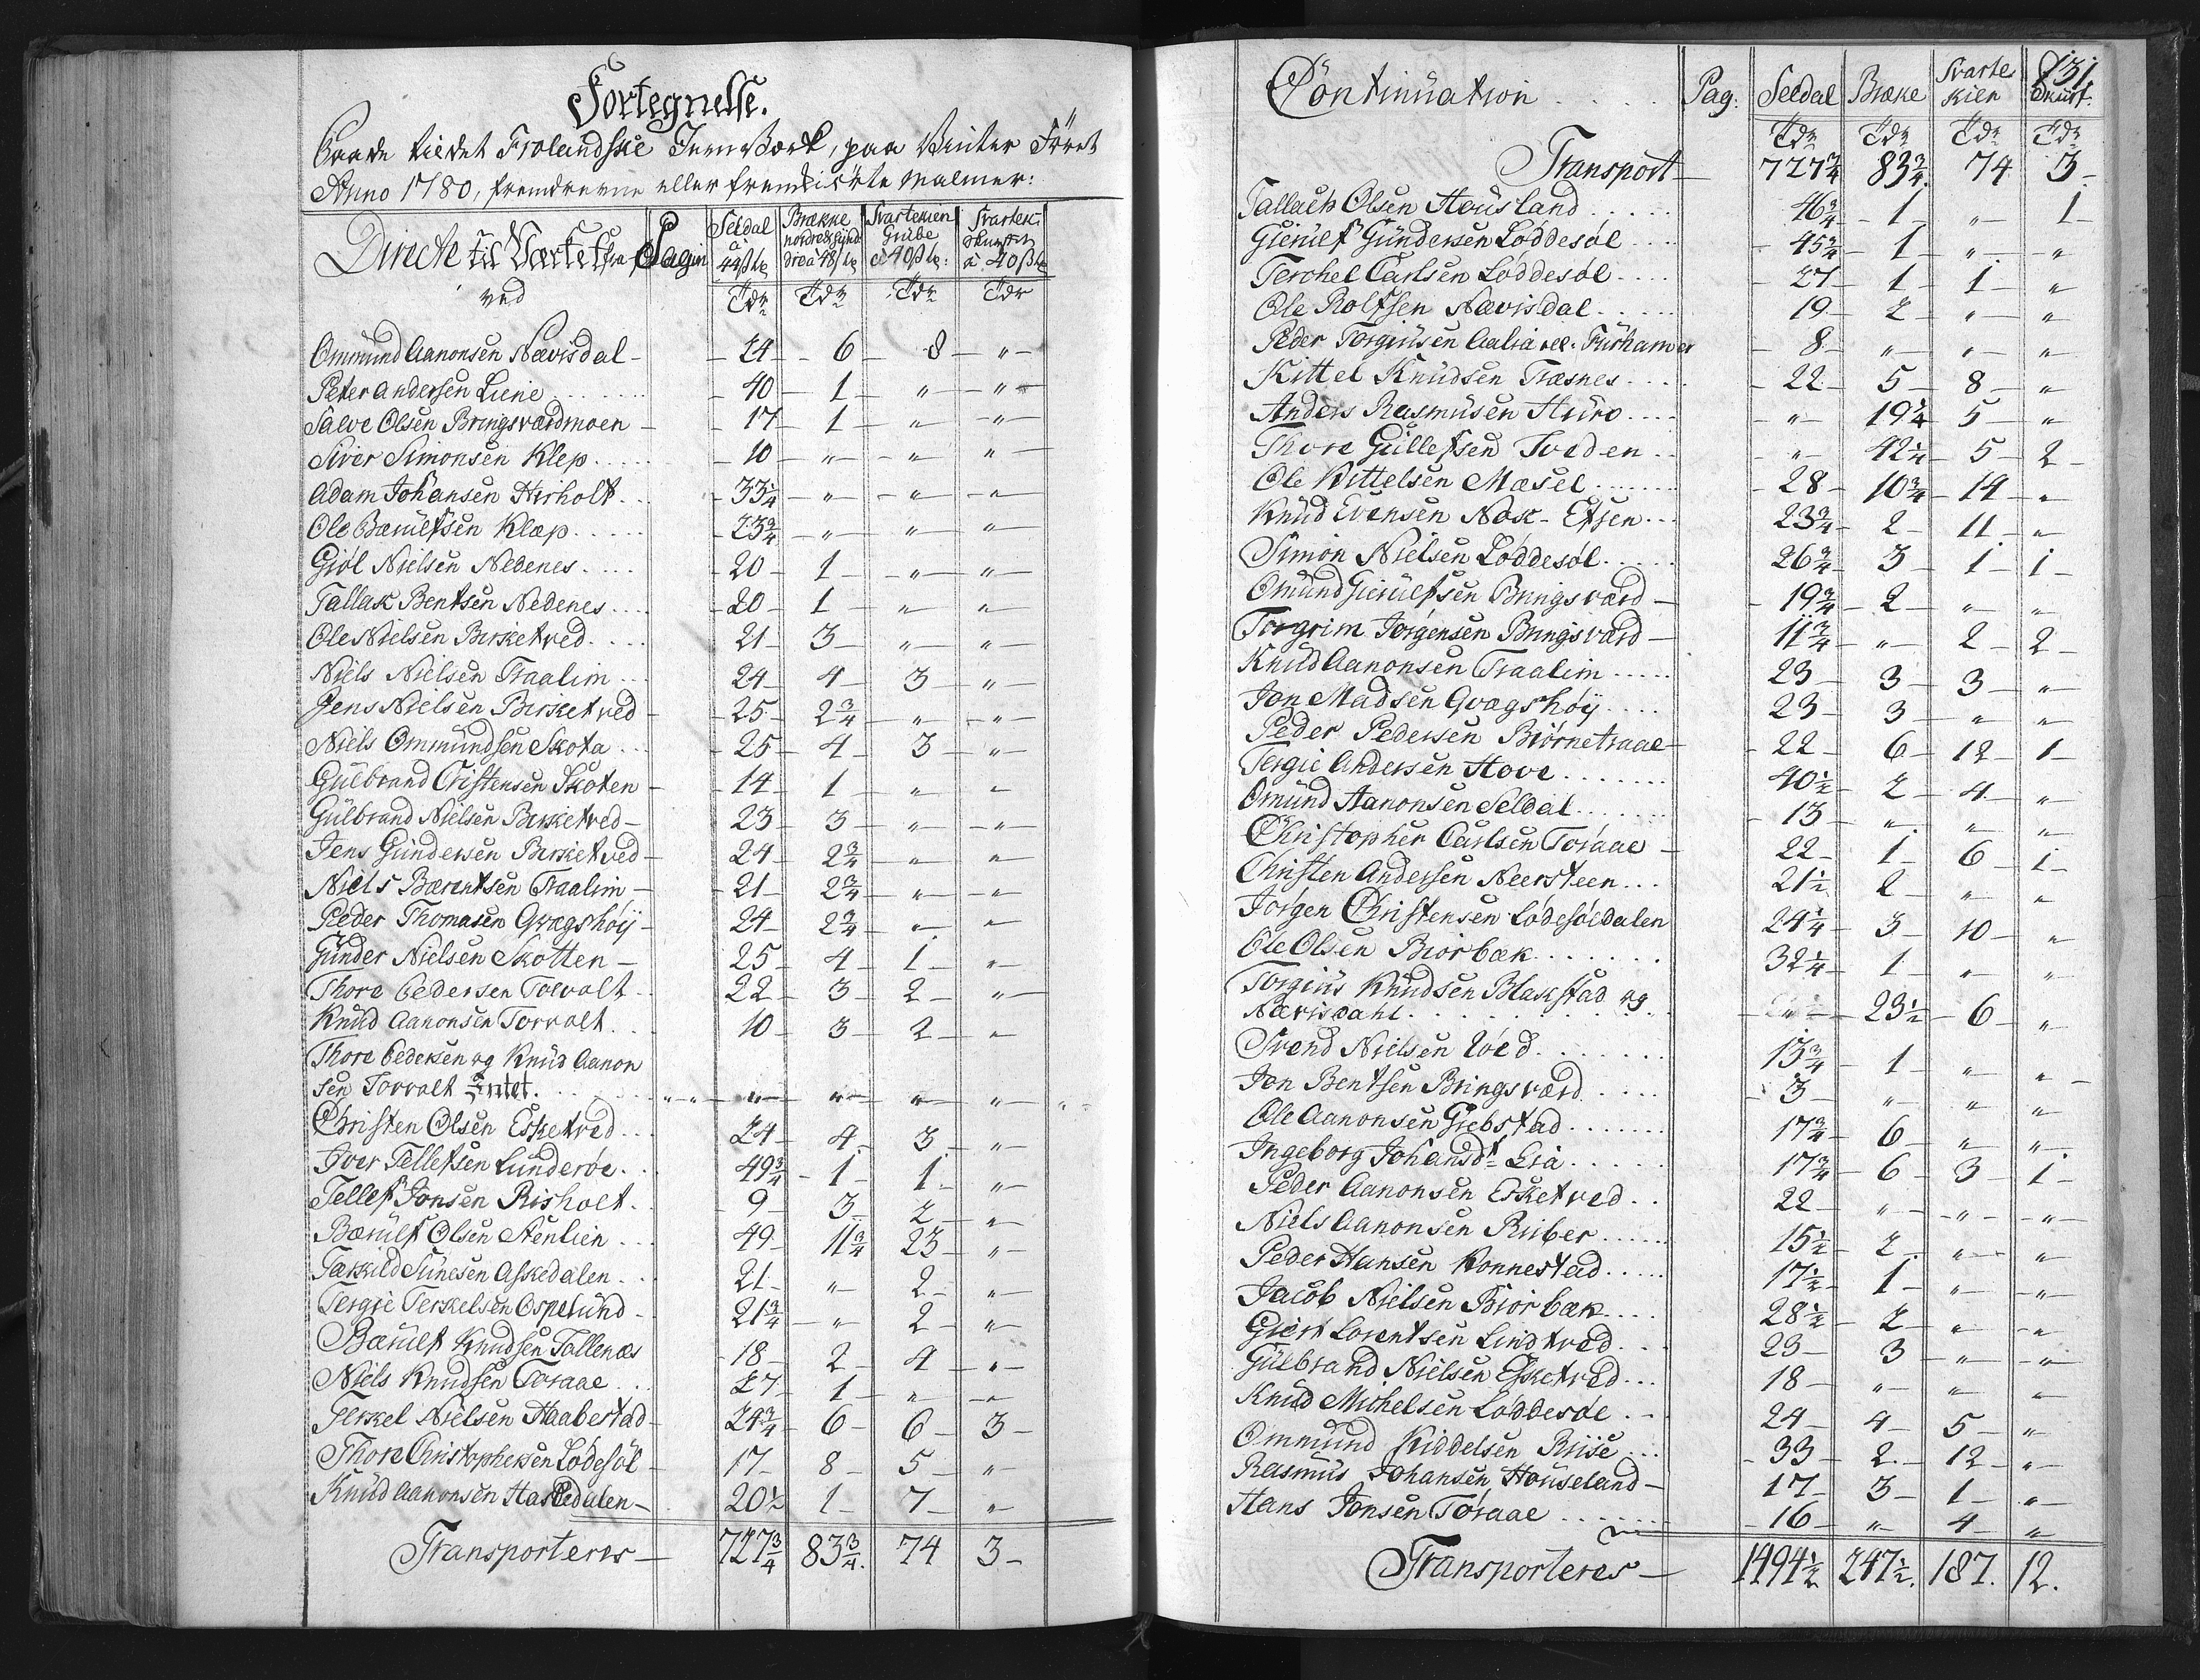 Fortegnelse.
Frolandske Jernværk, paa Vinter Føret
Anno 1780, fremdrevne eller fremkiørte Malmer:
Directe til Værket fra Pagin Seldal à 44 s tr Brække nordre & synd dre à 48 s tr Svartekien Grube à 40 s tr: Svartek: Skurf à 40 s tr
ved Tdr Tdr Tdr Tdr
Ommund Aanonsen Nævisdal - 24 - 6 - 8 - "
Peter Andersen Liene - 40 - 1 - " - "
Salve Olsen Bringsværdmoen - 17 - 1 - " - "
Siver Simonsen Klep - 10 - " - " - "
Adam Johansen Hirholt - 33 1/4 - " - " - "
Ole Bærulfsen Klæp - 23 3/4 - " - " - "
Giøl Nielsen Nedenes - 20 - 1 - " - "
Tallak Bentsen Nedenes - 20 - 1 - " - "
Ole Nielsen Birketved - 21 - 3 - " - "
Niels Nielsen Traalim - 24 - 4 - 3 - "
Jens Nielsen Birketved - 25 - 2 3/4 - " - "
Niels Ommundsen Skota - 25 - 4 - 3 - "
Gulbrand Cristensen Skoten - 14 - 1 - " - "
Gulbrand Nielsen Birketved - 23 - 3 - " - "
Jens Gundersen Birketved - 24 - 2 3/4 - " - "
Niels Bærentsen Traalim - 21 - 2 3/4 - " - "
Peder Thomasen Qvægshøy - 24 - 2 3/4 - " - "
Gunder Nielsen Skotten - 25 - 4 - 1 - "
Thore Pedersen Torvolt - 22 - 3 - 2 - "
Knud Aanonsen Torvolt - 10 - 3 - 2 - "
Thore Pedersen og Knud Aanon
sen Torvolt Intet. " " - " - " - " - " "
Christen Olsen Esketved - 24 - 4 - 3 - "
Iver Tellefsen Lunderøe - 49 3/4 - 1 - 1 - "
Tellef Jonsen Risholt - 9 - 3 - 2 - "
Bærulf Olsen Stenlien - 49 - 11 3/4 - 23 - "
Tarkild Sunesen Askedalen - 21 - " - 2 - "
Tergie Terkelsen Ospelund - 21 3/4 - " - 2 - "
Bærulf Knudsen Tallenæs - 18 - 2 - 4 - "
Niels Knudsen Toraae - 27 - 1 - " - "
Terkel Nielsen Haabestad - 24 3/4 - 6 - 6 - 3
Thore Christophersen Lødesøl - 17 - 8 - 5 - "
Knud Aanonsen Haskedalen - 20 1/2 - 1 - 7 - "
Transporteres - 727 3/4 83 3/4. 74 3 -
131.
Continuation . . . . Pag: Seldal Bræke Svarte kien Skurf.
Tdr Tdr Tdr Tdr
Transport - 727 3/4 83 3/4. 74 3.
Tallach Olsen Housland - 46 3/4 - 1 - " - 1
Gierulf Gundersen Løddesøl - 45 3/4 - 1 - " - "
Terchel Carlsen Løddesøl - 27 - 1 - 1 - "
Ole Rolfsen Nævisdal - 19 - 2 - " - "
Peder Torgiusen Aalia vel. Furhamer - 8 - " - " - "
Kittel Knudsen Træsnes - 22 - 5 - 8 - "
Anders Rasmusen Huro - " - 19 1/4 - 5 - "
Thore Gullefsen Tveden - " - 42 1/4 - 5 - 2
Ole Kittelsen Mæsel - 28 - 10 3/4 - 14 - "
Knud Evensen Næsk-Efsen - 23 3/4 - 2 - 11 - "
Simon Nielsen Løddesøl - 26 3/4 - 3 - 1 - 1
Omund Gierulfsen Bringsværd - 19 3/4 - 2 - " - "
Torgrim Jørgensen Bringsværd - 11 3/4 - " - 2 - 2
Knud Aanonsen Traalim - 23 - 3 - 3 - "
Jon Madsen Qvægshøy - 23 - 3 - " - "
Peder Pedersen Biørnetraae - 22 - 6 - 12 - 1
Tergie Andersen Hove - 40 1/2 - 2 - 4 - "
Omund Aanonsen Seldal - 13 - " - " - "
Christopher Carlsen Toraae - 22 - 1 - 6 - 1
Christen Andersen Neersteen - 21 1/2 - 2 - " - "
Jørgen Christensen Lødesøldalen - 24 1/4 - 3 - 10 - "
Ole Olsen Biorbæk - 32 1/4 - 1 - " - "
Torgius Knudsen Blakstad og
Nævisdahl - " - 23 1/2 - 6 - "
Svend Nielsen Løed - 13 3/4 - 1 - " - "
Jon Bentsen Bringsværd - 3 - " - " - "
Ole Aanonsen Giebstad - 17 3/4 - 6 - " - "
Ingeborg Johansdt Lia - 17 3/4 - 6 - 3 - 1
Peder Aanonsen Esketved - 22 - " - " - "
Niels Aanonsen Riiber - 15 1/2 - 2 - " - "
Peder Hansen Konnestad - 17 1/2 - 1 - " - "
Jacob Nielsen Biorbæk - 28 1/2 - 2 - " - "
Giert Lorentsen Lindtved - 23 - 3 - " - "
Gulbrand Nielsen Esketved - 18 - " - " - "
Knud Michelsen Løddesøl - 24 - 4 - 5 - "
Ommund Kiddelsen Riise - 33 - 2 - 12 - "
Rasmus Johansen Houseland - 17 - 3 - 1 - "
Hans Jonsen Toraae - 16 - " - 4 - "
Transporteres - 1494 1/2 247 1/2. 187. 12.